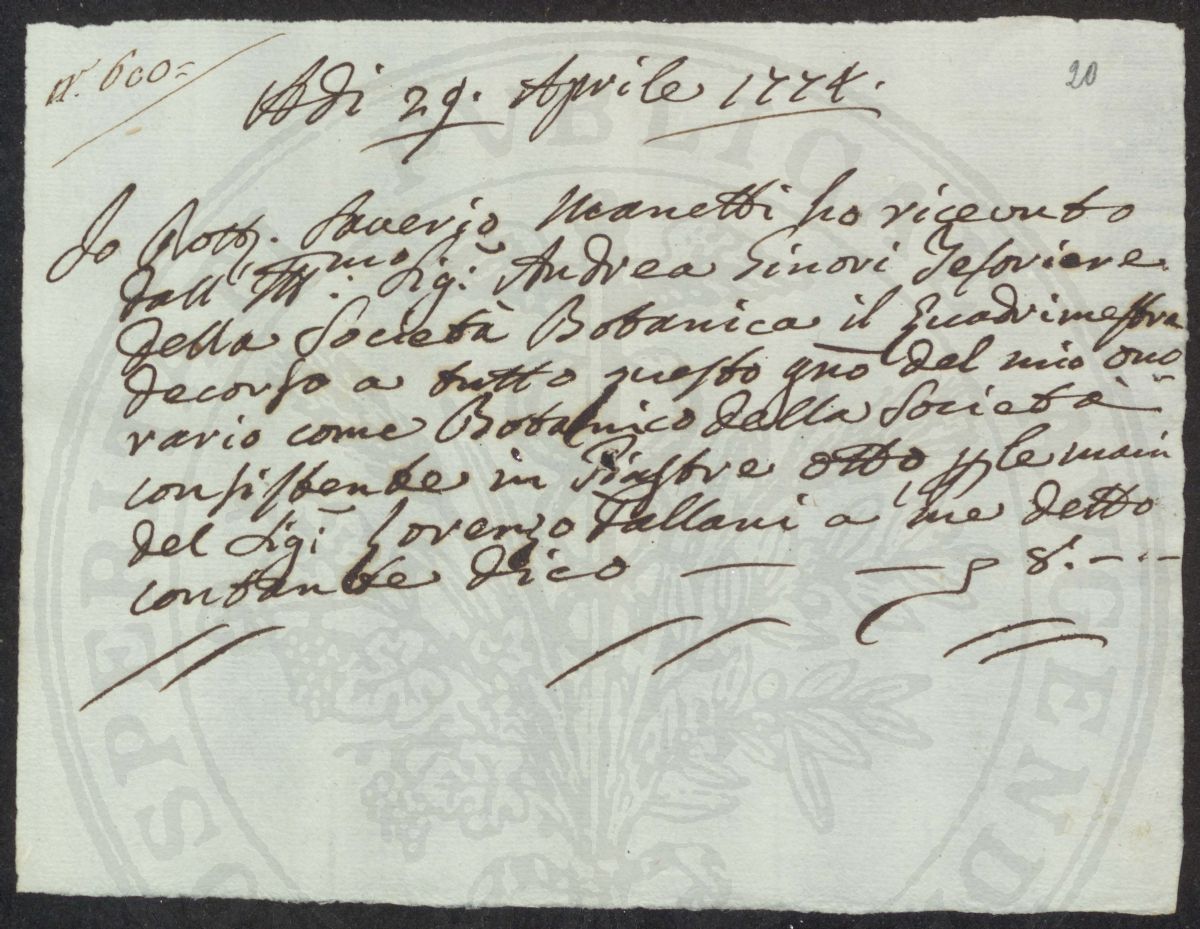 n.º 600=
20
Adi 29. Aprile 1774.
Io Dott. Saverio Manetti ho ricevuto
dall' Ill.mo Sig.r Andrea Ginori Tesoriere
della Società Botanica il Quadrimestre
decorso a tutto questo gno del mio ono
rario come Botanico della Società
consistente in Piastre otto p le mani
del Sig.r Lorenzo Tallani a me detto
contante dico — — 8. — . —